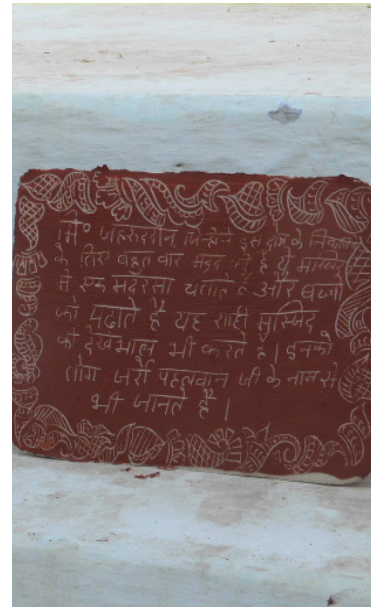 मि॰ जहरुद्दीन जिन्होने इस क्षेत्र के
के लिए बहुत बार मदद की है ये मस्जिद
मे एक मदरसा चलाते है और बच्चो
को पढाते है यह शाही मस्जिद
की देखभाल भी करते है। इनको
लोग जर्रा पहलवान जी के नाम से
भी जानते है।